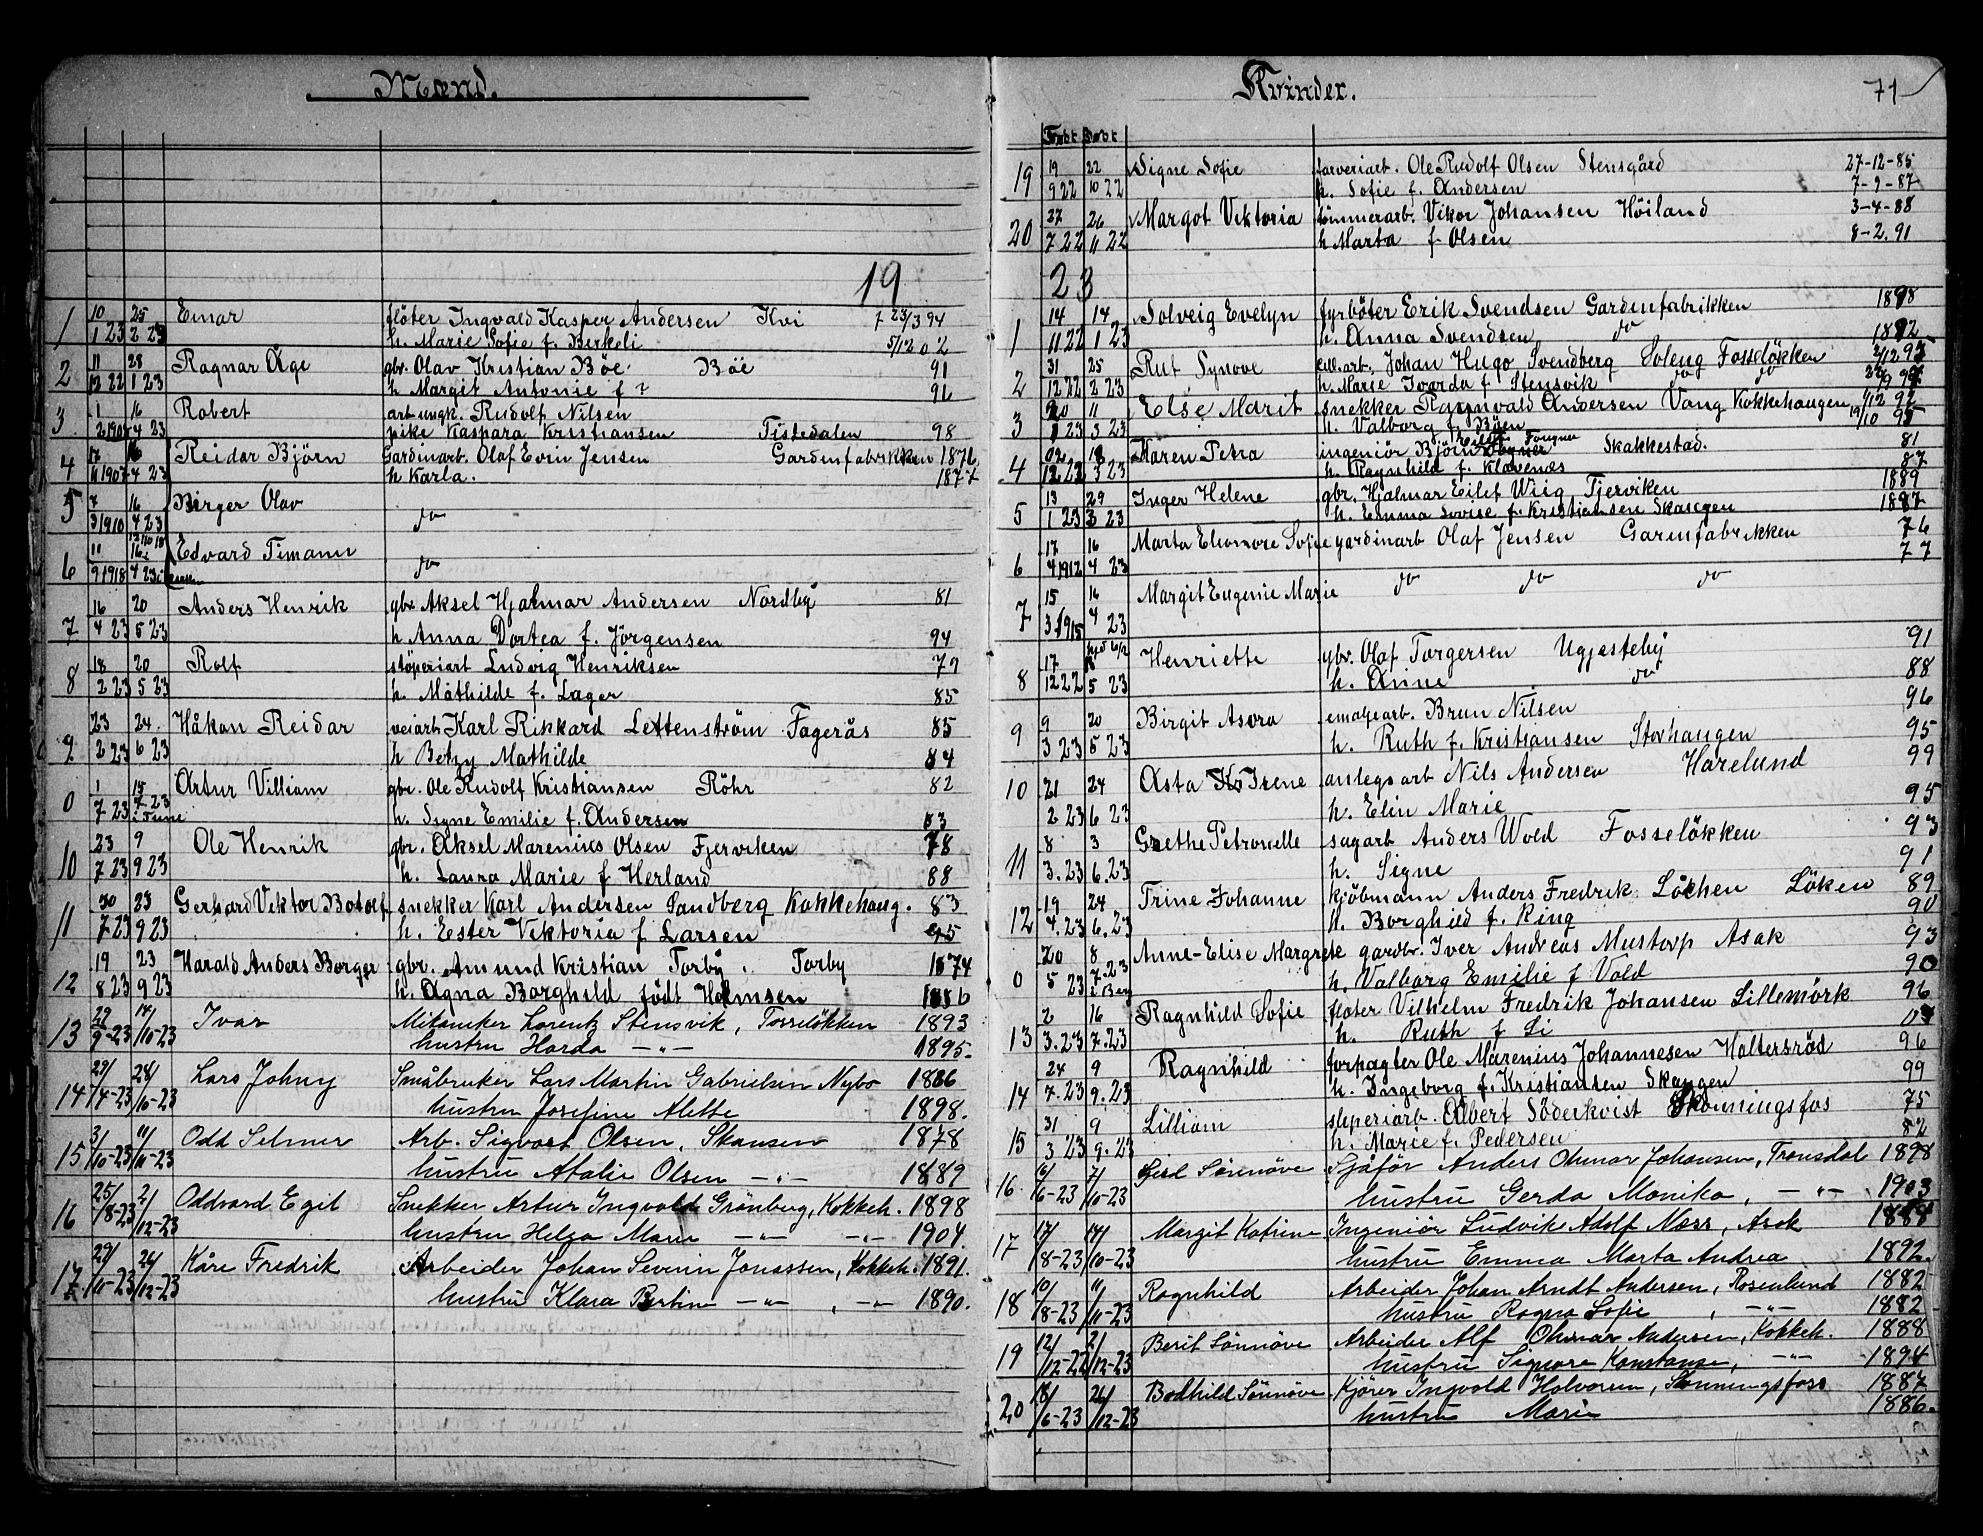 Mænd.
19
1 10/1 23 25/2 23 Einar flöter Ingvald Kasper Andersen Kvi 23/3 94
h. Marie Sofie f. Birkeli 5/12 02
2 11/12 22 28/1 23 Ragnar Åge gbr. Olav Kristian Böe Böe 91
h Margit Antonie f ? 96
3 1/2 1908 16/4 23 Robert arb ungk. Rudolf Nilsen
pike Kaspara Kristiansen Tistedalen 98
4 17/11 1907 16/4 23 Reidar Björn Gardinarb. Olaf Evin Jensen Gardinfabrikken 1876
h Karla. 1877
5 7/3 1910 16/4 23 Birger Olav do
6 11/9 1918 16/4 23 Edvard Timann do
7 16/4 23 20/5 23 Anders Henrik gbr Aksel Hjalmar Andersen Nordby 81
h Anna Dortea f. Jörgensen 94
8 18/2 23 20/5 23 Rolf stöperiarb Ludvig Henriksen 77
h. Mathilde f. Lager 85
9 23/2 23 24/6 23 Håkon Reidar veiarb Karl Rikkard Lettenström Fagerås 85
h Betzy Mathilde 84
0 1/7 23 15/7 23 i Tune Artur Villiam gbr. Ole Rudolf Kristiansen Röhr 82
h. Signe Emilie f. Andersen 83
10 23/7 23 9/9 23 Ole Henrik gbr. Aksel Marenius Olsen Fjerviken 78
h. Laura Marie f Herland 88
11 30/7 23 23/9 23 Gerhard Viktor Botolf snekker Karl Andersen Sandberg Kokkehaug. 83
h. Ester Viktoria f Larsen 95
12 19/8 23 23/9 23 Harald Anders Borger gbr. Amund Kristian Torby. Torby 1874
h. Agna Borghild födt Holmsen 1886
13 29/9-23 14/10-23 Ivar Mikaniker Lorentz Stensvik, Fosseløkken 1893
hustru Harda -"- 1895.
14 29/4-23 28/10-23 Lars Johny Småbruker Lars Martin Gabrielsen Nybo 1886
hustru Josefine Alette 1898.
15 3/10-23 11/11-23 Odd Selmer Arb. Sigvart Olsen, Skansen 1878
hustru Atalie Olsen -"- 1889
16 25/8-23 2/12-23 Oddvard Egil Snekker Artur Ingvald Grönberg, Kokkeh. 1898
hustru Helga Marie -"- -"- 1904
17 29/10-23 26/12-23 Kåre Fredrik Arbeider Johan Severin Jonassen, Kokkeh. 1891.
hustru Klara Bertine -"- , -"- 1890.
Kvinder. 71
Født Døbt
19 19/9 22 22/10 22 Signe Sofie farveriarb. Ole Rudolf Olsen Stensgård 27-12-85
h. Sofie f. Andersen 7-9-87
20 27/7 22 26/11 22 Margot Viktoria tömmerarb. Viktor Johansen Höiland 3-4-88
h Marta f Olsen 8-2.91
23
1 14/11 22 14/1 23 Solveig Evelyn fyrböter Erik Svendsen Gardenfabrikken 1898
h. Anna Svendsen do 1892
2 31/12 22 25/2 23 Rut Synove Johan Hugo Svendberg Soleng Fosselökken
h. Marie Ivarda f. Stensvik do do
3 20/1 23 11/3 23 Else Marit snekker Ragnvald Andersen Vang Kokkehaugen 1/12 92
h. Valborg f. Böen 19/10 95
4 18/3 23 Maren Petra ingeniör Björn Skakkestad. 81
h. Ragnhild f. Klavenæs 87
5 13/1 23 29/3 23 Inger Helene gbr. Hjalmar Eilef Wiig Fjerviken 1889
h. Emma Lovise f. Kristiansen Skaugen 1887
6 17/4 1912 16/4 23 Marta Elenore Sofie gardinarb Olaf Jensen Garenfabrikken 76
77
7 15/3 1915 16/4 23 Margit Eugenie Marie do do do
8 17/12 22 5 23 Henriette gbr. Olaf Torgersen Ugjesteby 91
h. Anne do 88
9 9/3 23 20/5 23 Birgit Asora emaljearb. Brun Nilsen 96
h. Ruth f. Kristiansen Storhaugen 95
10 21/2 23 24/6 23 Asta Irene anlegsarb Nils Andersen Harelund 99
h. Elin Marie 95
11 8/3.23 3/6.23 Grethe Petronelle sagarb Anders Wold Fosselökken 93
h. Signe 91
12 19/4.23 24/6.23 Trine Johanne kjöbmann Anders Fredrik Löchen Löken 89
h. Borghild f. Ring 90
0 20/5 23 8/7.23 i Berg Anne-Elise Margrete gardbr. Iver Andreas Mustorp Asak 93
h. Valborg Emilie f Vold 90
13 2/3.23 16/7.23 Ragnhild Sofie flöter Vilhelm Fredrik Johansen Lillemörk 96
h. Ruth f Li
14 24/7.23 9/9.23 Ragnhild forpagter Ole Marenius Johannesen Holtersröd 96
h. Ingeborg f. Kristiansen Skaugen 99
15 31/3 23 9/9.23 Lilliam sliperiarb. Albert Söderkvist Skonningsfos 75
h. Marie f. Pedersen 82
16. 6/6-23 7/10-23 Gerd Sönnöve Sjåför Anders Ohmar Johansen, Tronsdal 1898
hustru Gerda Monika, -"- 1903
17 17/8-23 14/10-23 Margit Katrine Ingeniör Ludvik Adolf Næss, Asak 1884
hustru Emma Marta Andrea 1892.
18 10/8-23 11/11-23 Ragnhild Arbeider Johan Arndt Andersen, Rosenlund 1882
hustru Ragna Sofie , -"- 1882
19 12/12-22 2/12-23 Berit Sönnöve Arbeider Alf Ohmar Andersen, Kokkeh. 1888
hustru Signore Konstanse, -"- 1894
20 18/6-23 26/12-23 Bodhild Sönnöve Kjörer Ingvald Halvorsen, Skonningsfoss 1887
hustru Marie 1886.